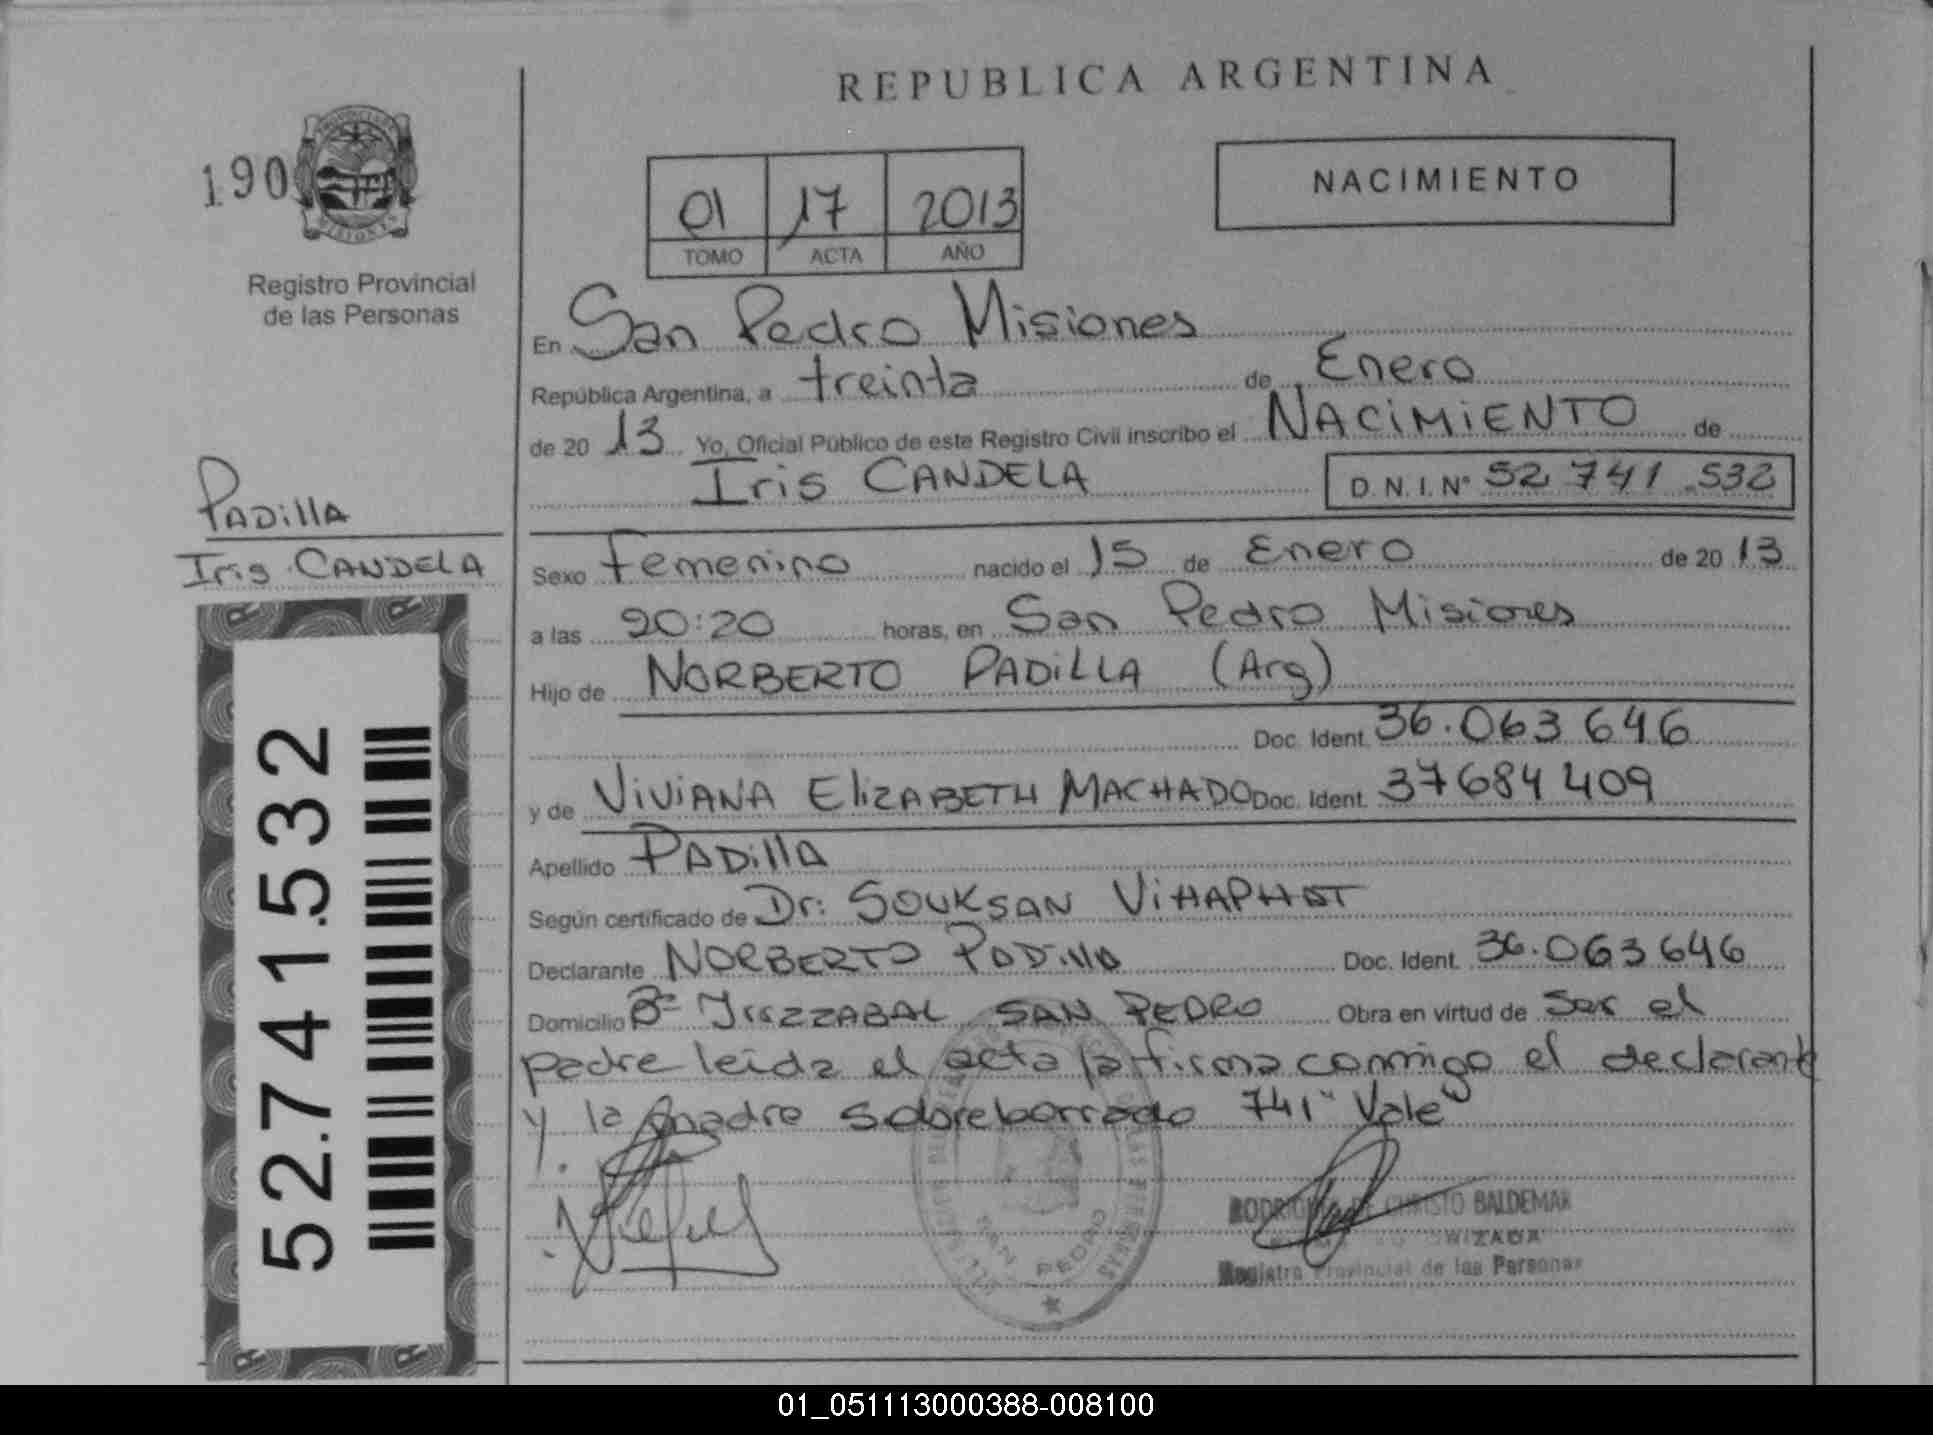 REPUBLICA ARGENTINA
190
NACIMIENTO
01 17 2013
TOMO ACTA AÑO
Registro Provincial
de las Personas
En San Pedro Misiones
República Argentina, a treinta de Enero
de 20 13 Yo, Oficial Público de este Registro Civil inscribo el NACIMIENTO de
Iris CANDELA D.N.I.Nº 52 741 532
PADILLA
Iris CANDELA
Sexo Femenino nacido el 15 de Enero de 20 13
a las 20:20 horas, en San Pedro Misiones
Hijo de NORBERTO PADILLA (Arg)
Doc. Ident. 36.063 646
y de VIVIANA ELIZABETH MACHADO Doc. Ident. 37684 409
Apellido PADILLA
Según certificado de Dr: SOUKSAN
Declarante NORBERTO PADILLA Doc. Ident. 36.063 646
Domicilio Bº SAN PEDRO Obra en virtud de Ser el
padre leida el acta la firma conmigo el declarante
y la madre sobreborrado 741 "Vale"
52.741.532
SAN PEDRO
BALDEMAR
Registro Provincial de las Personas
01_051113000388-008100